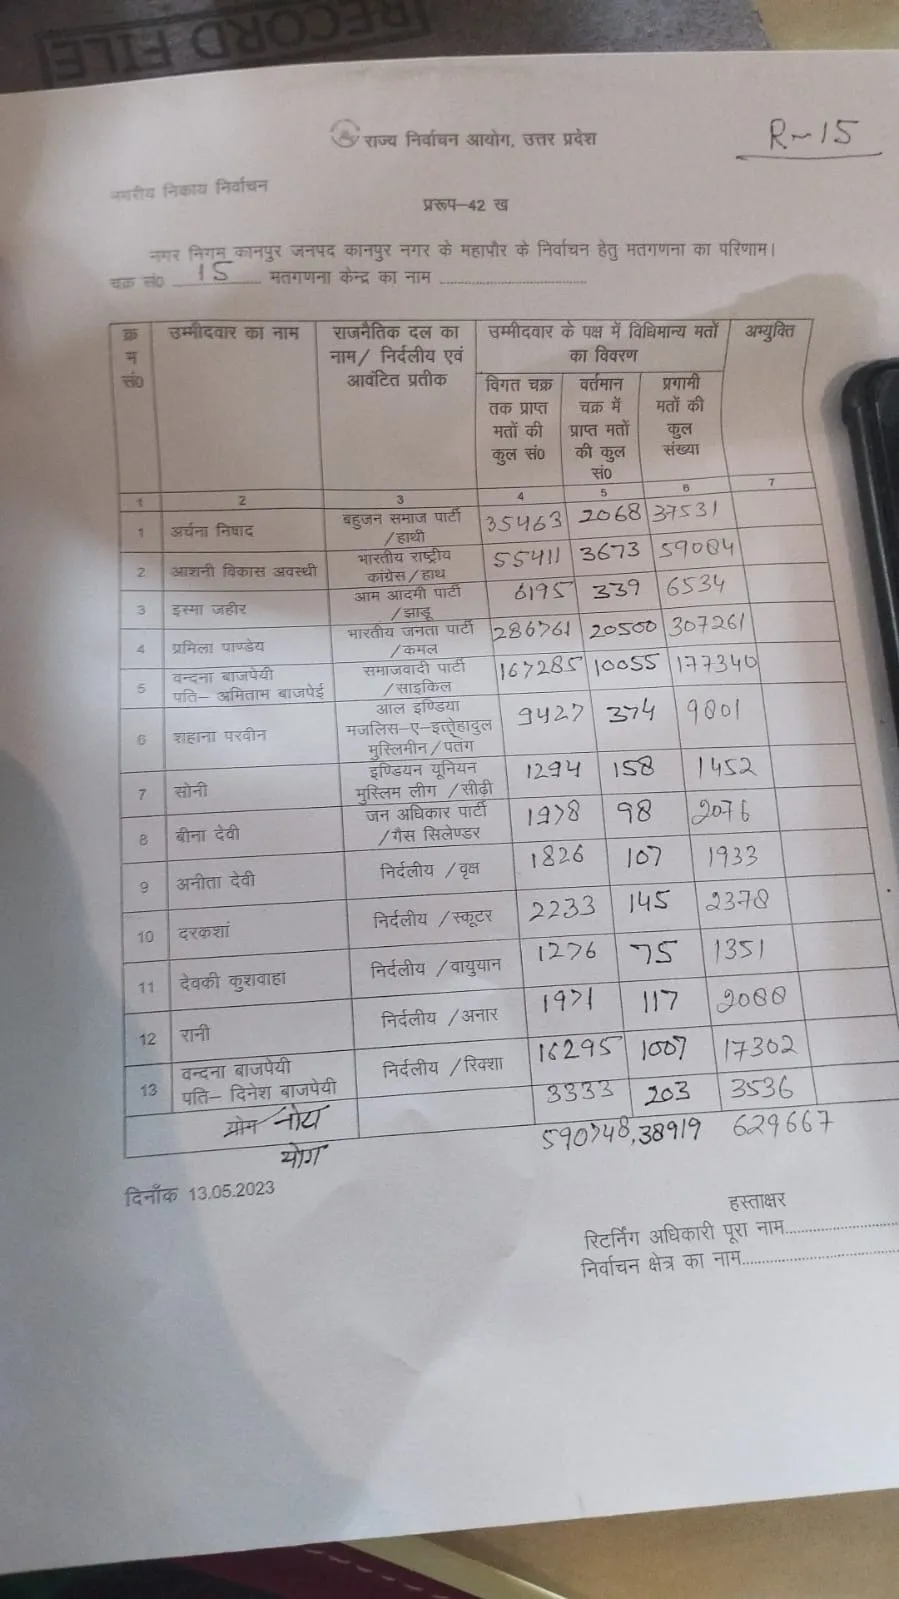 RECORD FILE
राज्य निर्वाचन आयोग, उत्तर प्रदेश
R-15
नगरीय निकाय निर्वाचन
प्ररूप-42 ख
नगर निगम कानपुर जनपद कानपुर नगर के महापौर के निर्वाचन हेतु मतगणना का परिणाम।
चक्र सं० 15 मतगणना केन्द्र का नाम
क्रम सं० उम्मीदवार का नाम राजनैतिक दल का नाम/ निर्दलीय एवं आवंटित प्रतीक उम्मीदवार के पक्ष में विधिमान्य मतों का विवरण अभ्युक्ति
विगत चक्र तक प्राप्त मतों की कुल सं० वर्तमान चक्र में प्राप्त मतों की कुल सं० प्रगामी मतों की कुल संख्या
1 2 3 4 5 6 7
1 अर्चना निषाद बहुजन समाज पार्टी /हाथी 35463 2068 37531
2 आशनी विकास अवस्थी भारतीय राष्ट्रीय कांग्रेस/हाथ 55411 3673 59084
3 इस्मा जहीर आम आदमी पार्टी /झाडू 6195 339 6534
4 प्रमिला पाण्डेय भारतीय जनता पार्टी /कमल 286761 20500 307261
5 वन्दना बाजपेयी पति- अमिताम बाजपेई समाजवादी पार्टी /साइकिल 167285 10055 177340
6 शहाना परवीन आल इण्डिया मजलिस-ए-इत्तेहादुल मुस्लिमीन/पतंग 9427 374 9801
7 सोनी इण्डियन यूनियन मुस्लिम लीग /सीढ़ी 1294 158 1452
8 बीना देवी जन अधिकार पार्टी /गैस सिलेण्डर 1978 98 2076
9 अनीता देवी निर्दलीय /वृक्ष 1826 107 1933
10 दरकशां निर्दलीय /स्कूटर 2233 145 2378
11 देवकी कुशवाहा निर्दलीय /वायुयान 1276 75 1351
12 रानी निर्दलीय /अनार 1971 117 2088
13 वन्दना बाजपेयी पति- दिनेश बाजपेयी निर्दलीय /रिक्शा 16295 1007 17302
नोटा 3333 203 3536
योग 590748, 38919 629667
दिनाँक 13.05.2023
हस्ताक्षर
रिटर्निंग अधिकारी पूरा नाम
निर्वाचन क्षेत्र का नाम